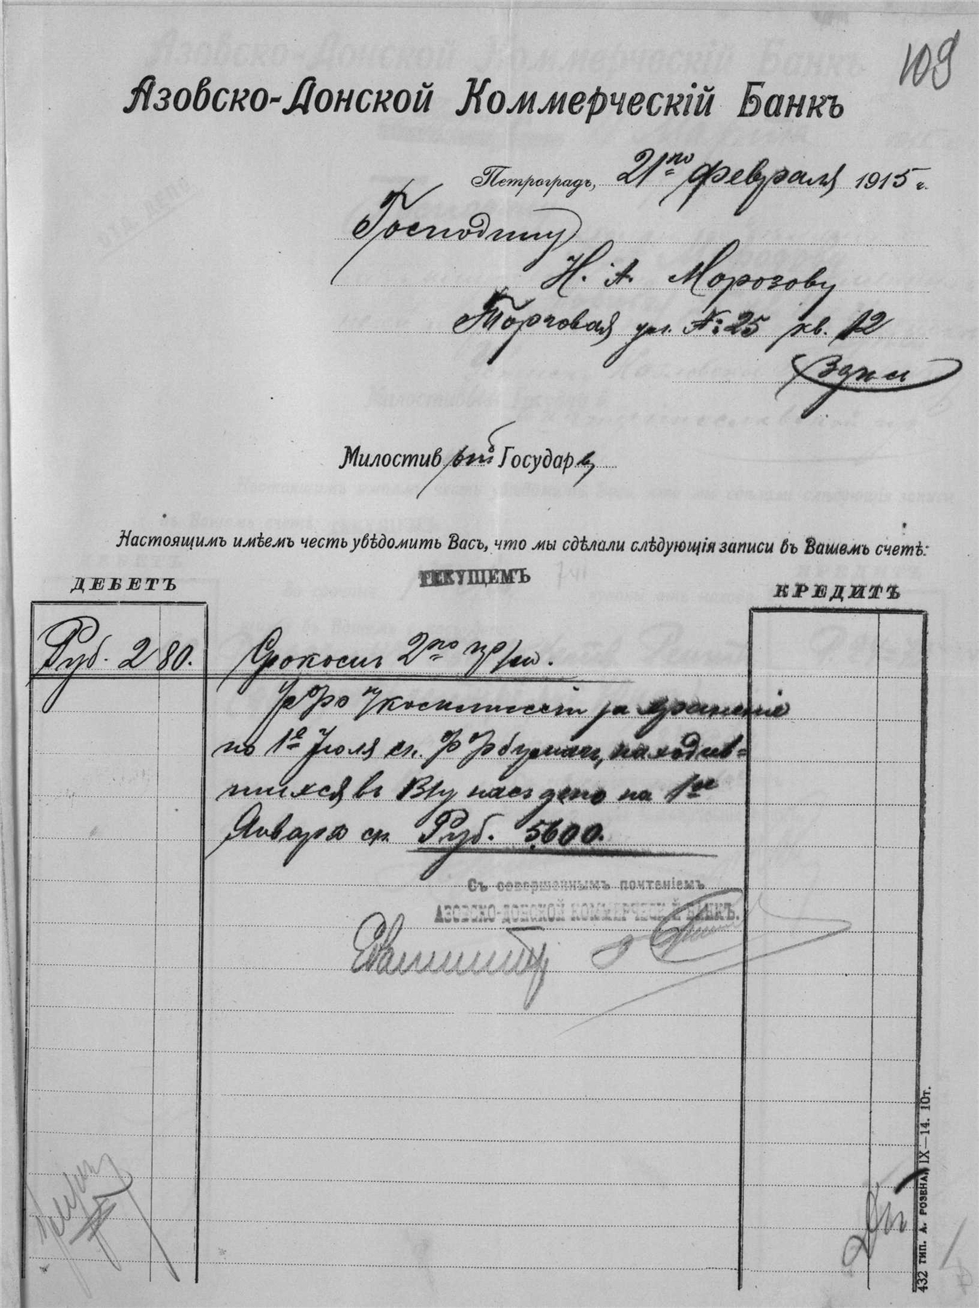 109
Азовско-Донской Коммерческій Банкъ
Петроградъ, 21го Февраля 1915 г.
Господину
Н. А. Морозову
Торговая ул. № 25 кв. 12
Здѣсь
Милостивый Государь
Настоящимъ имѣемъ честь увѣдомить Васъ, что мы сдѣлали слѣдующія записи въ Вашемъ счетѣ:
ТЕКУЩЕМЪ
ДЕБЕТЪ
КРЕДИТЪ
Руб. 2 80. Срокомъ 2го
коммиссіи за храненіе
по 1е Іюля бумаг, находив-
шихся въ у насъ депо на 1ое
Января Руб. 5600.
Съ совершеннымъ почтеніемъ
АЗОВСКО-ДОНСКОЙ КОММЕРЧЕСКІЙ БАНКЪ.
432 ТИП. А. РОЗЕНА, IX—14. 10т.